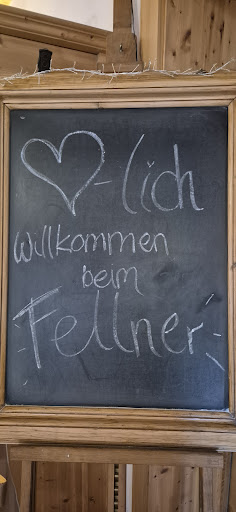 ♡-lich
willkommen
beim
Fellner